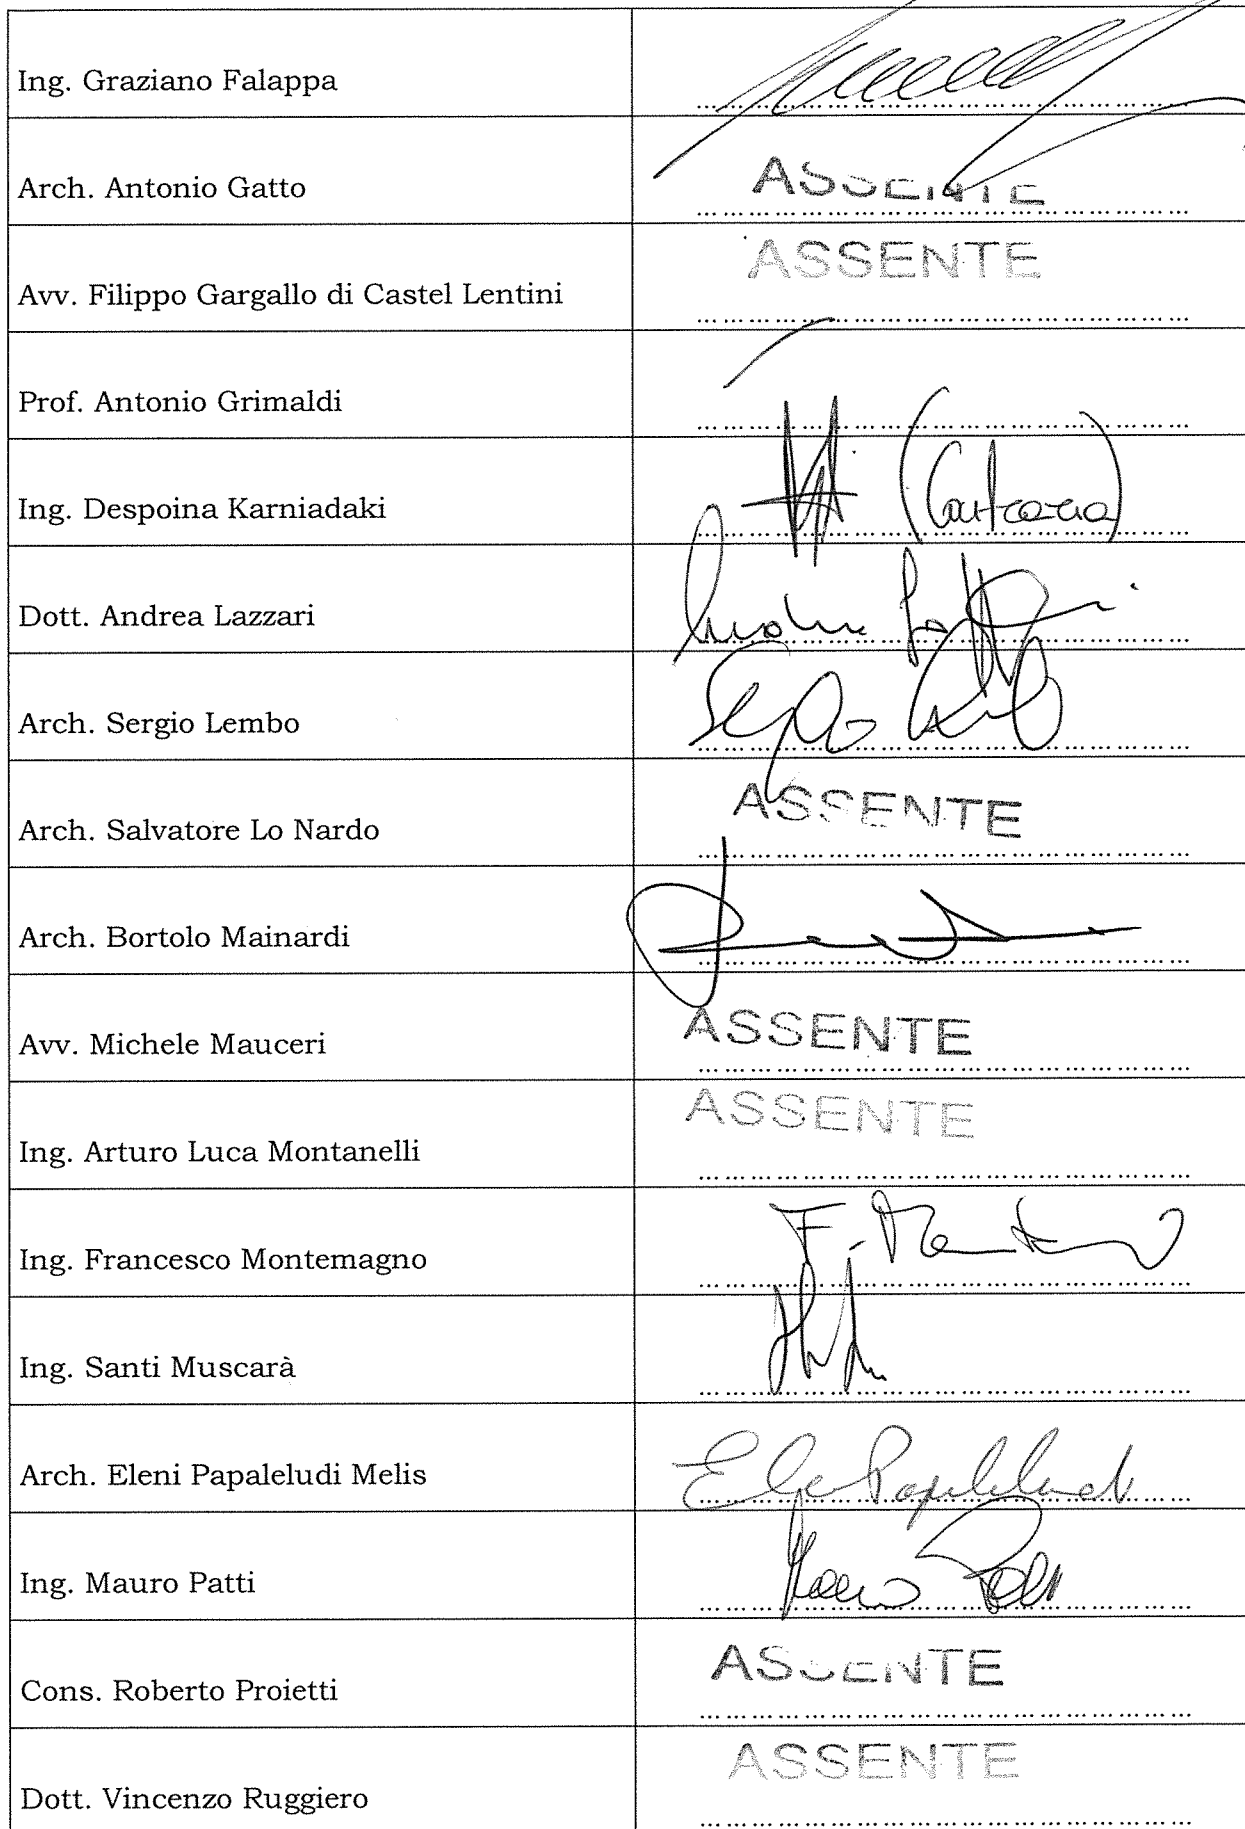 Ing. Graziano Falappa
Arch. Antonio Gatto ASSENTE
Avv. Filippo Gargallo di Castel Lentini ASSENTE
Prof. Antonio Grimaldi
Ing. Despoina Karniadaki
Dott. Andrea Lazzari
Arch. Sergio Lembo Sergio Lembo
Arch. Salvatore Lo Nardo ASSENTE
Arch. Bortolo Mainardi
Avv. Michele Mauceri ASSENTE
Ing. Arturo Luca Montanelli ASSENTE
Ing. Francesco Montemagno
Ing. Santi Muscarà
Arch. Eleni Papaleludi Melis
Ing. Mauro Patti
Cons. Roberto Proietti ASSENTE
Dott. Vincenzo Ruggiero ASSENTE